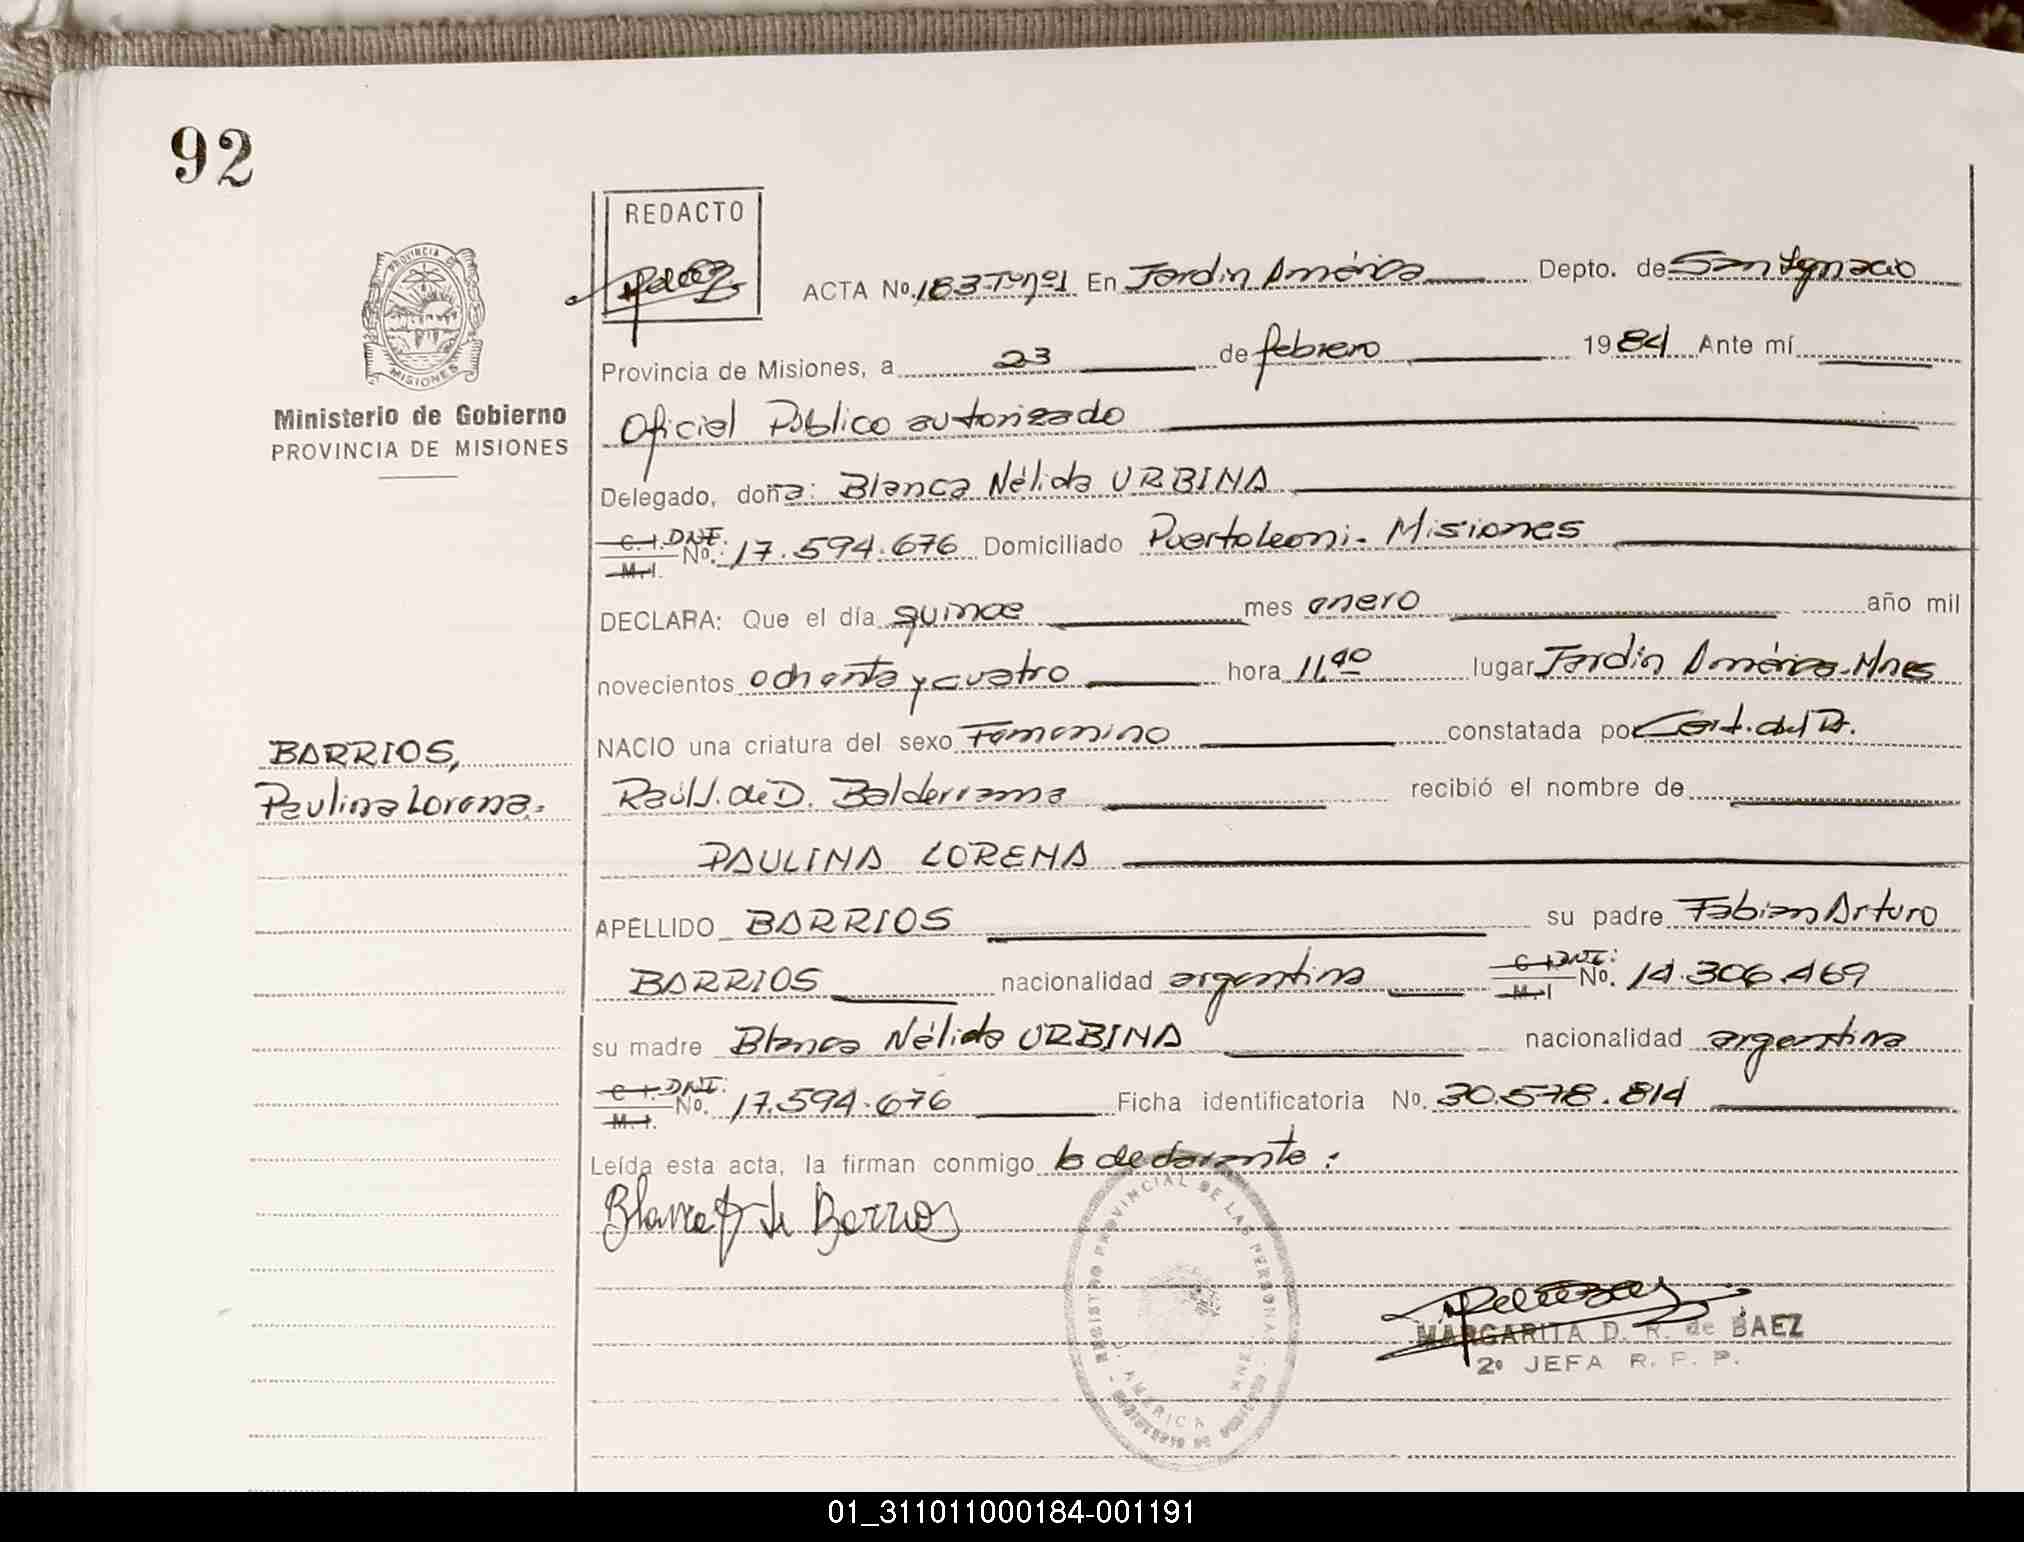 92
REDACTO
PROVINCIA DE
MISIONES
Ministerio de Gobierno
PROVINCIA DE MISIONES
BARRIOS,
Paulina Lorena.
ACTA No. 183-Tºnº1 En Jardín América Depto. de San Ignacio
Provincia de Misiones, a 23 de febrero 1984 Ante mí
Oficial Público autorizado
Delegado, doña: Blanca Nélida URBINA
C. I. DNI: M. I. No. 17.594.676 Domiciliado Puerto Leoni - Misiones
DECLARA: Que el día quince mes enero año mil
novecientos ochenta y cuatro hora 11,40 lugar Jardín América-Mnes
NACIO una criatura del sexo Femenino constatada por Cert. del Dr.
Raúl J. de D. Balderrama recibió el nombre de
PAULINA LORENA
APELLIDO BARRIOS su padre Fabian Arturo
BARRIOS nacionalidad argentina C. I. DNI: M. I. No. 14.306.469
su madre Blanca Nélida URBINA nacionalidad argentina
C. I. DNI: M. I. No. 17.594.676 Ficha identificatoria No. 30.578.814
Leída esta acta, la firman conmigo la declarante:
Blanca de Barrios
REGISTRO PROVINCIAL DE LAS PERSONAS
AMERICA
MARGARITA D. R. de BAEZ
2º JEFA R. P. P.
01_311011000184-001191